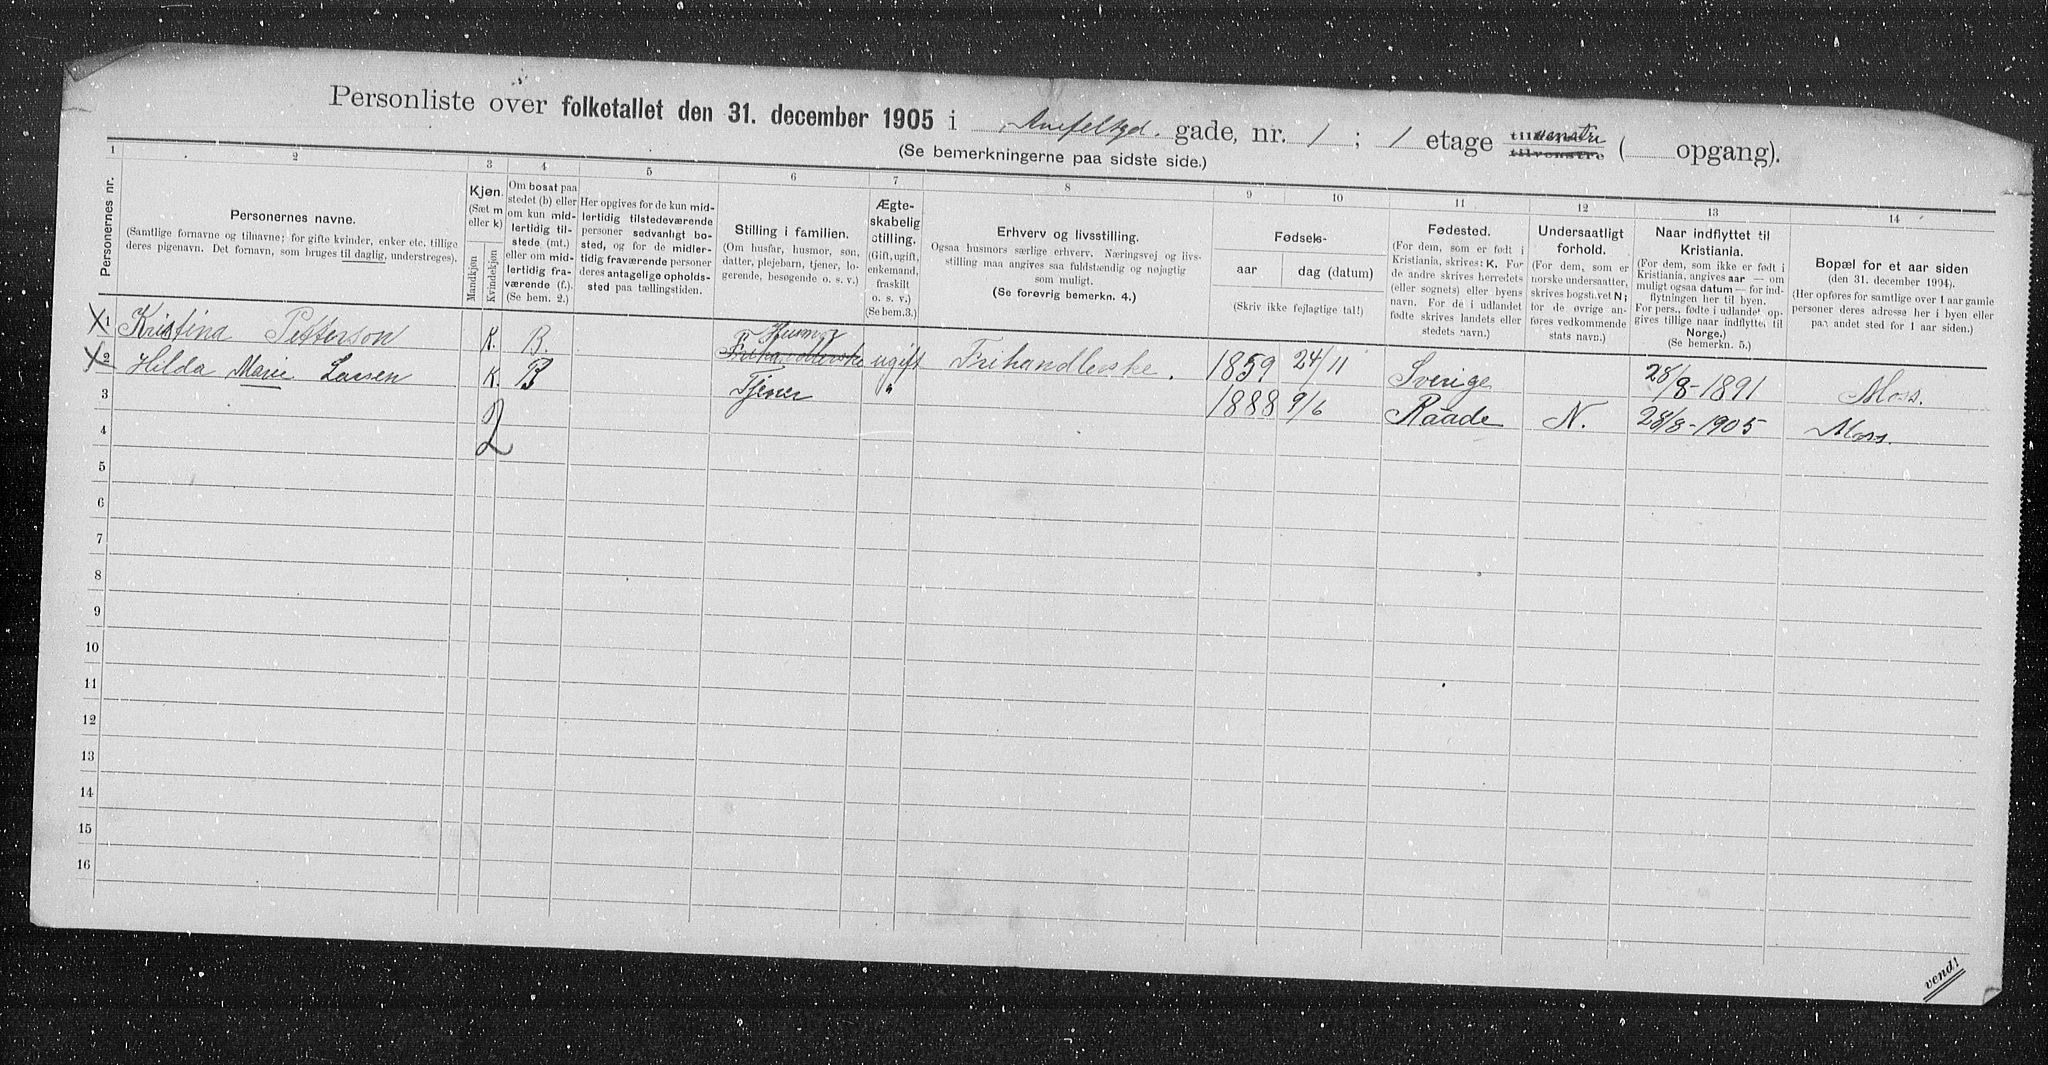 Personliste over folketallet den 31. december 1905 i gade, nr. 1 ; 1 etage venstre ( opgang).
tilvenstre
(Se bemerkningerne paa sidste side.)
1 2 3 4 5 6 7 8 9 10 11 12 13 14
Personernes nr.
Personernes navne.
(Samtlige fornavne og tilnavne; for gifte kvinder, enker etc. tillige
deres pigenavn. Det fornavn, som bruges til daglig, understreges).
Kjøn.
(Sæt m
eller k)
Mandkjøn
Kvindekjøn
Om bosat paa
stedet (b) eller
om kun mid-
lertidig til-
stede (mt.)
eller om mid-
lertidig fra-
værende (f.).
(Se bem. 2.)
Her opgives for de kun mid-
lertidig tilstedeværende
personer sedvanligt bo-
sted, og for de midler-
tidig fraværende personer
deres antagelige opholds-
sted paa tællingstiden.
Stilling i familien.
(Om husfar, husmor, søn,
datter, plejebarn, tjener, lo-
gerende, besøgende o. s. v.)
Ægte-
skabelig
stilling.
(Gift, ugift,
enkemand,
fraskilt
o. s. v.)
(Se bem.3.)
Erhverv og livsstilling.
Ogsaa husmors særlige erhverv. Næringsvej og livs-
stilling maa angives saa fuldstændig og nøjagtig
som muligt.
(Se forøvrig bemerkn. 4.)
Fødsels-
aar dag (datum)
(Skriv ikke fejlagtige tal!)
Fødested.
(For dem, som er født i
Kristiania, skrives: K. For
de andre skrives herredets
(eller sognets) eller byens
navn. For de i udlandet
fødte skrives landets eller
stedets navn.)
Undersaatligt
forhold.
(For dem, som er
norske undersaatter,
skrives bogstavet N;
for de øvrige an-
føres vedkommende
stats navn.)
Naar indflyttet til
Kristiania.
(For dem, som ikke er født i
Kristiania, angives aar — om
muligt ogsaa datum — for ind-
flytningen her til byen.
For pers., fødte i udlandet, op-
gives tillige naar indflyttet til
Norge.)
(Se bemerkn. 5.)
Bopæl for et aar siden
(den 31. december 1904).
(Her opføres for samtlige over 1 aar gamle
personer deres adresse her i byen eller
paa andet sted for 1 aar siden.)
X 1 Kristina Petterson K. B. Husmor Frihandlerske ugift Frihandlerske. 1859 24/11 Sverige 28/8-1891 Moss.
X 2 Hilda Marie Larsen K. B Tjener " 1888 9/6 Raade N. 28/8-1905 Moss.
3
2
4
5
6
7
8
9
10
11
12
13
14
15
16
vend!